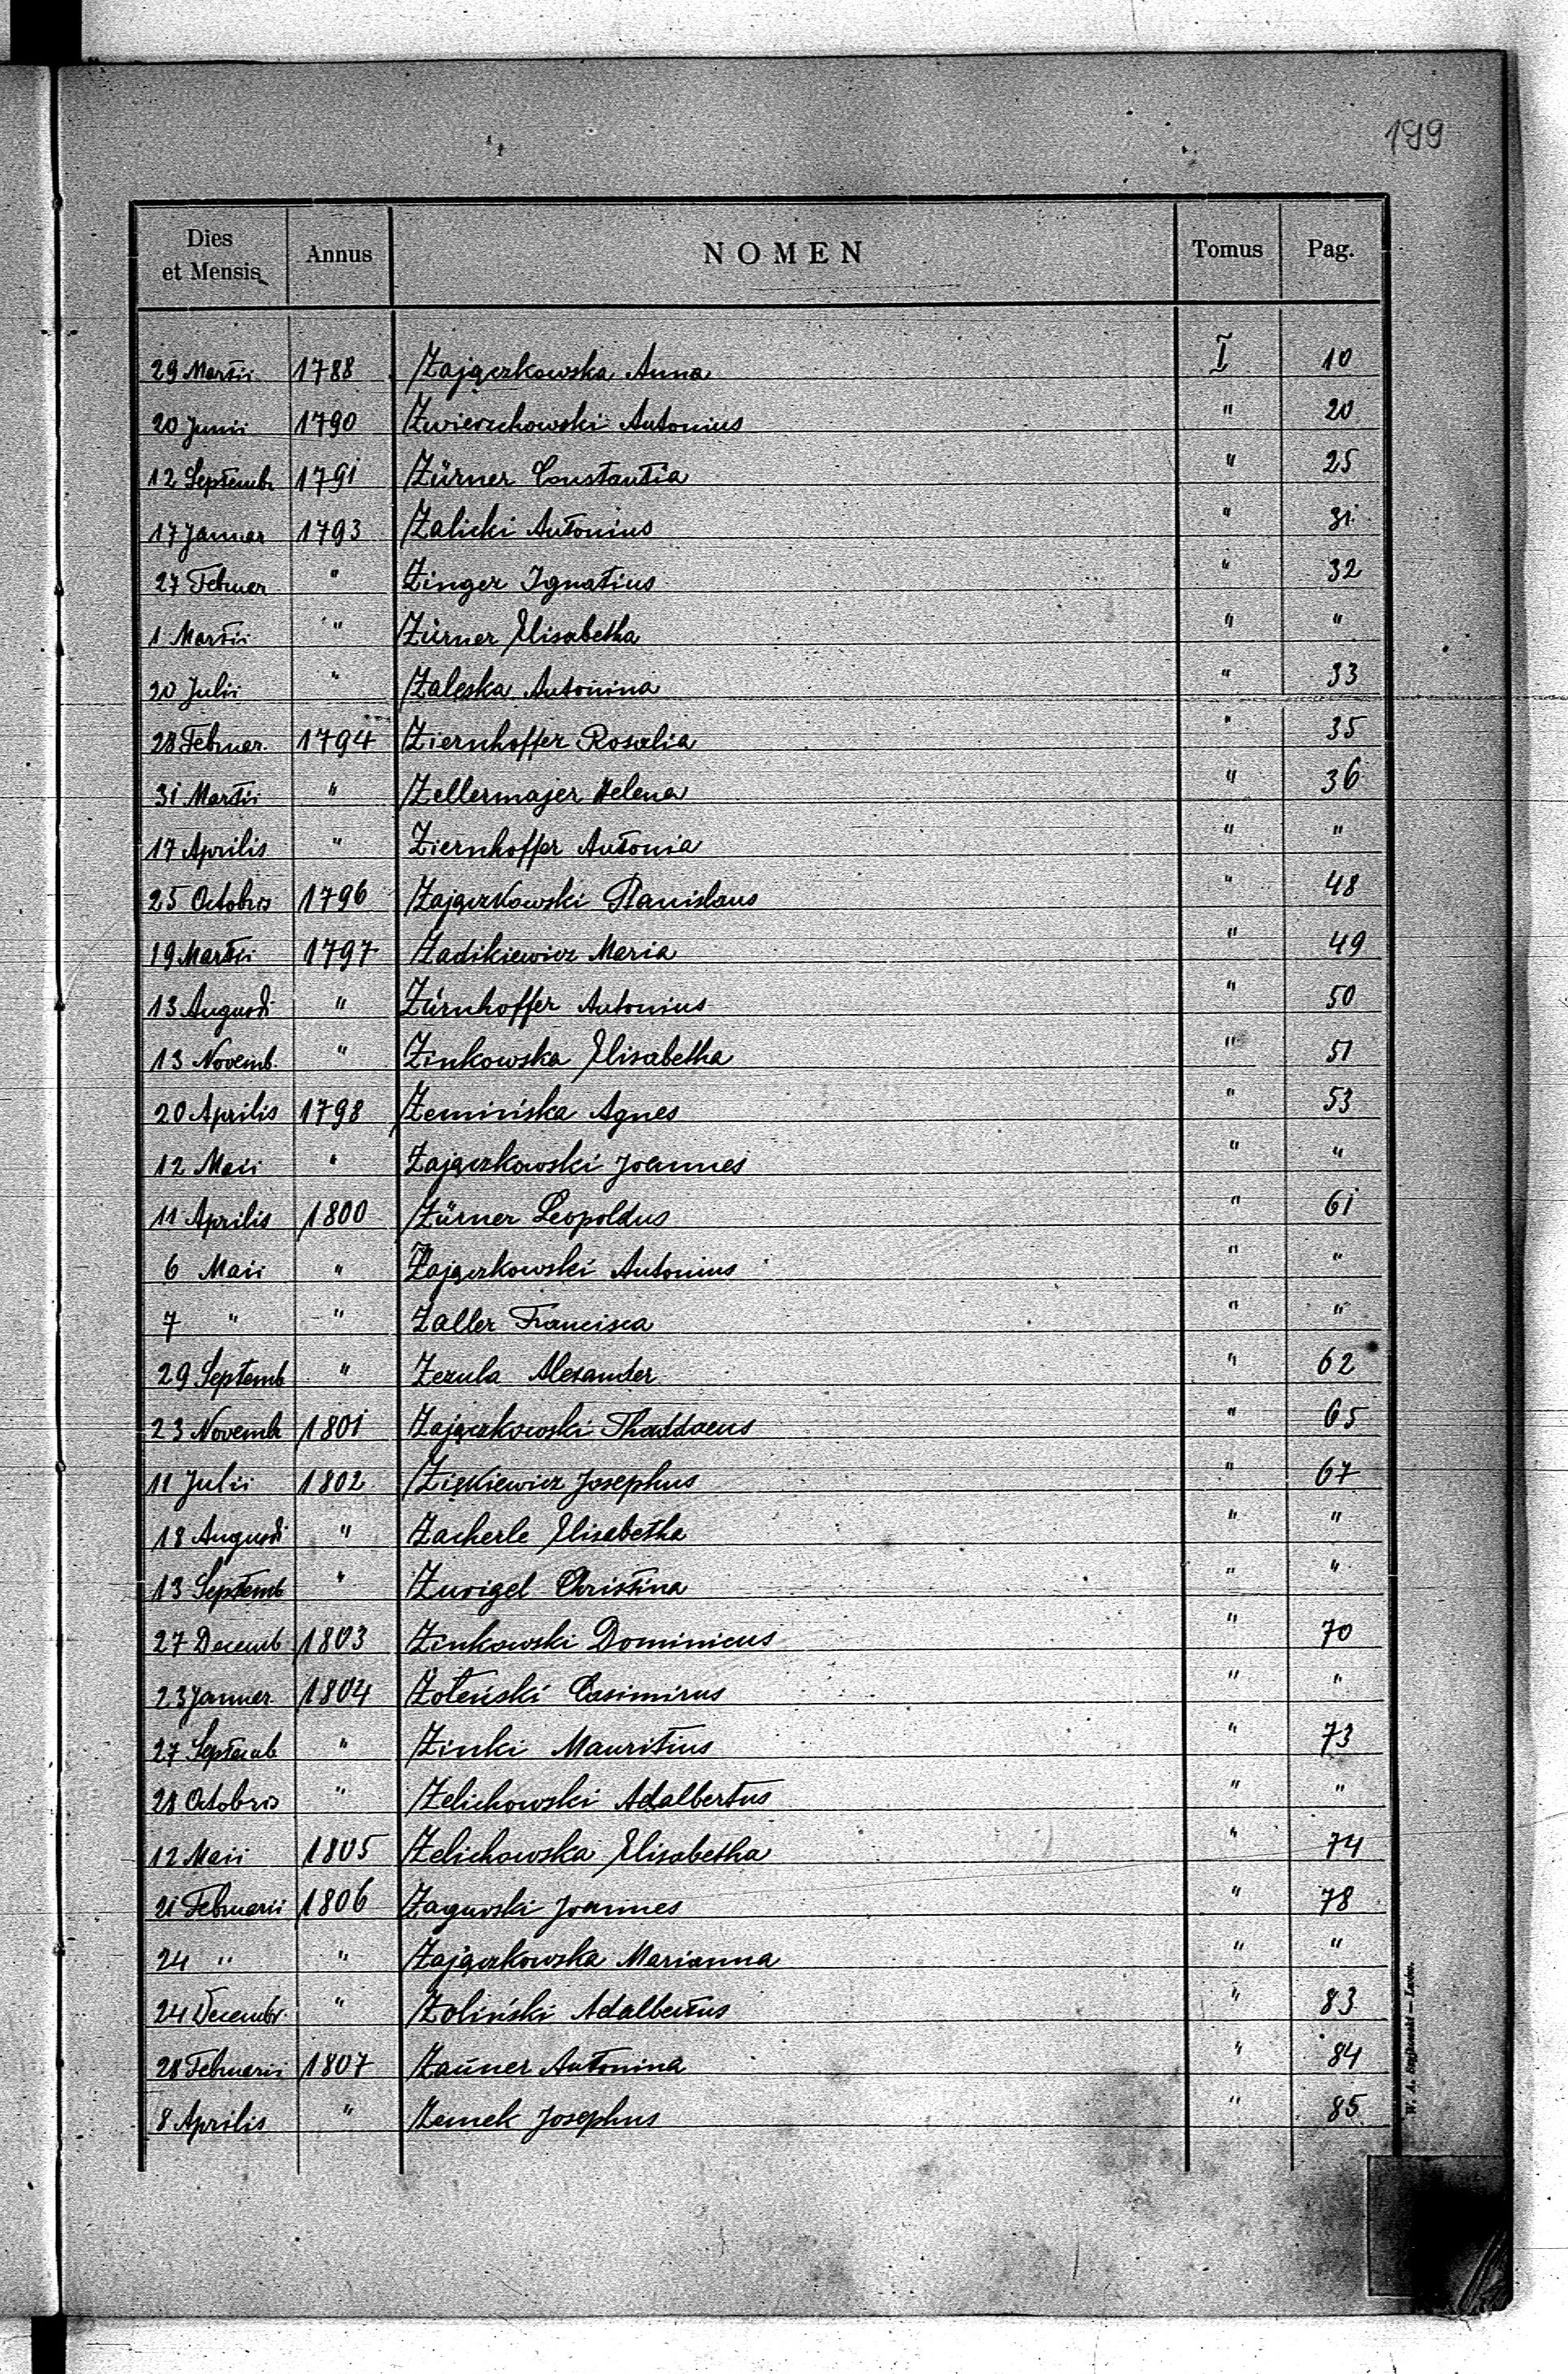 199
Dies et Mensis Annus NOMEN Tomus Pag.
29 Martii 1788 Zajączkowska Anna I 10
20 Junii 1790 Zwierzchowski Antonius " 20
12 Septemb 1791 Zürner Constantia " 25
17 Januar 1793 Zalicki Antonius " 31
27 Februar " Zinger Ignatius " 32
1 Martii " Zürner Elisabetha " "
20 Julii " Zaleska Antonina " 33
28 Februar. 1794 Ziernhoffer Rosalia " 35
31 Martii " Zellermajer Helena " 36
17 Aprilis " Ziernhoffer Antonia " "
25 Octobris 1796 Zajączkowski Stanislaus " 48
19 Martii 1797 Zadikiewicz Maria " 49
13 Augusti " Zürnhoffer Antonius " 50
13 Novemb. " Zinkowska Elisabetha " 51
20 Aprilis 1798 Zemińska Agnes " 53
12 Maii " Zajączkowski Joannes " "
11 Aprilis 1800 Zürner Leopoldus " 61
6 Maii " Zajączkowski Antonius " "
7 " " Zaller Francisca " "
29 Septemb " Zezula Alexander " 62
23 Novemb 1801 Zajączkowski Thaddaeus " 65
11 Julii 1802 Ziękiewicz Josephus " 67
18 Augusti " Zacherle Elisabetha " "
13 Septemb " Christina " "
27 Decemb 1803 Zinkowski Dominicus " 70
23 Januar 1804 Żoteński Casimirus " "
27 Septemb " Zinki Mauritius " 73
28 Octobris " Zelichowski Adalbertus " "
12 Maii 1805 Zelichowska Elisabetha " 74
21 Februarii 1806 Zagurski Joannes " 78
24 " " Zajączkowska Marianna " "
24 Decembr. " Zoliński Adalbertus " 83
28 Februarii 1807 Zauner Antonina " 84
8 Aprilis " Zemek Josephus " 85